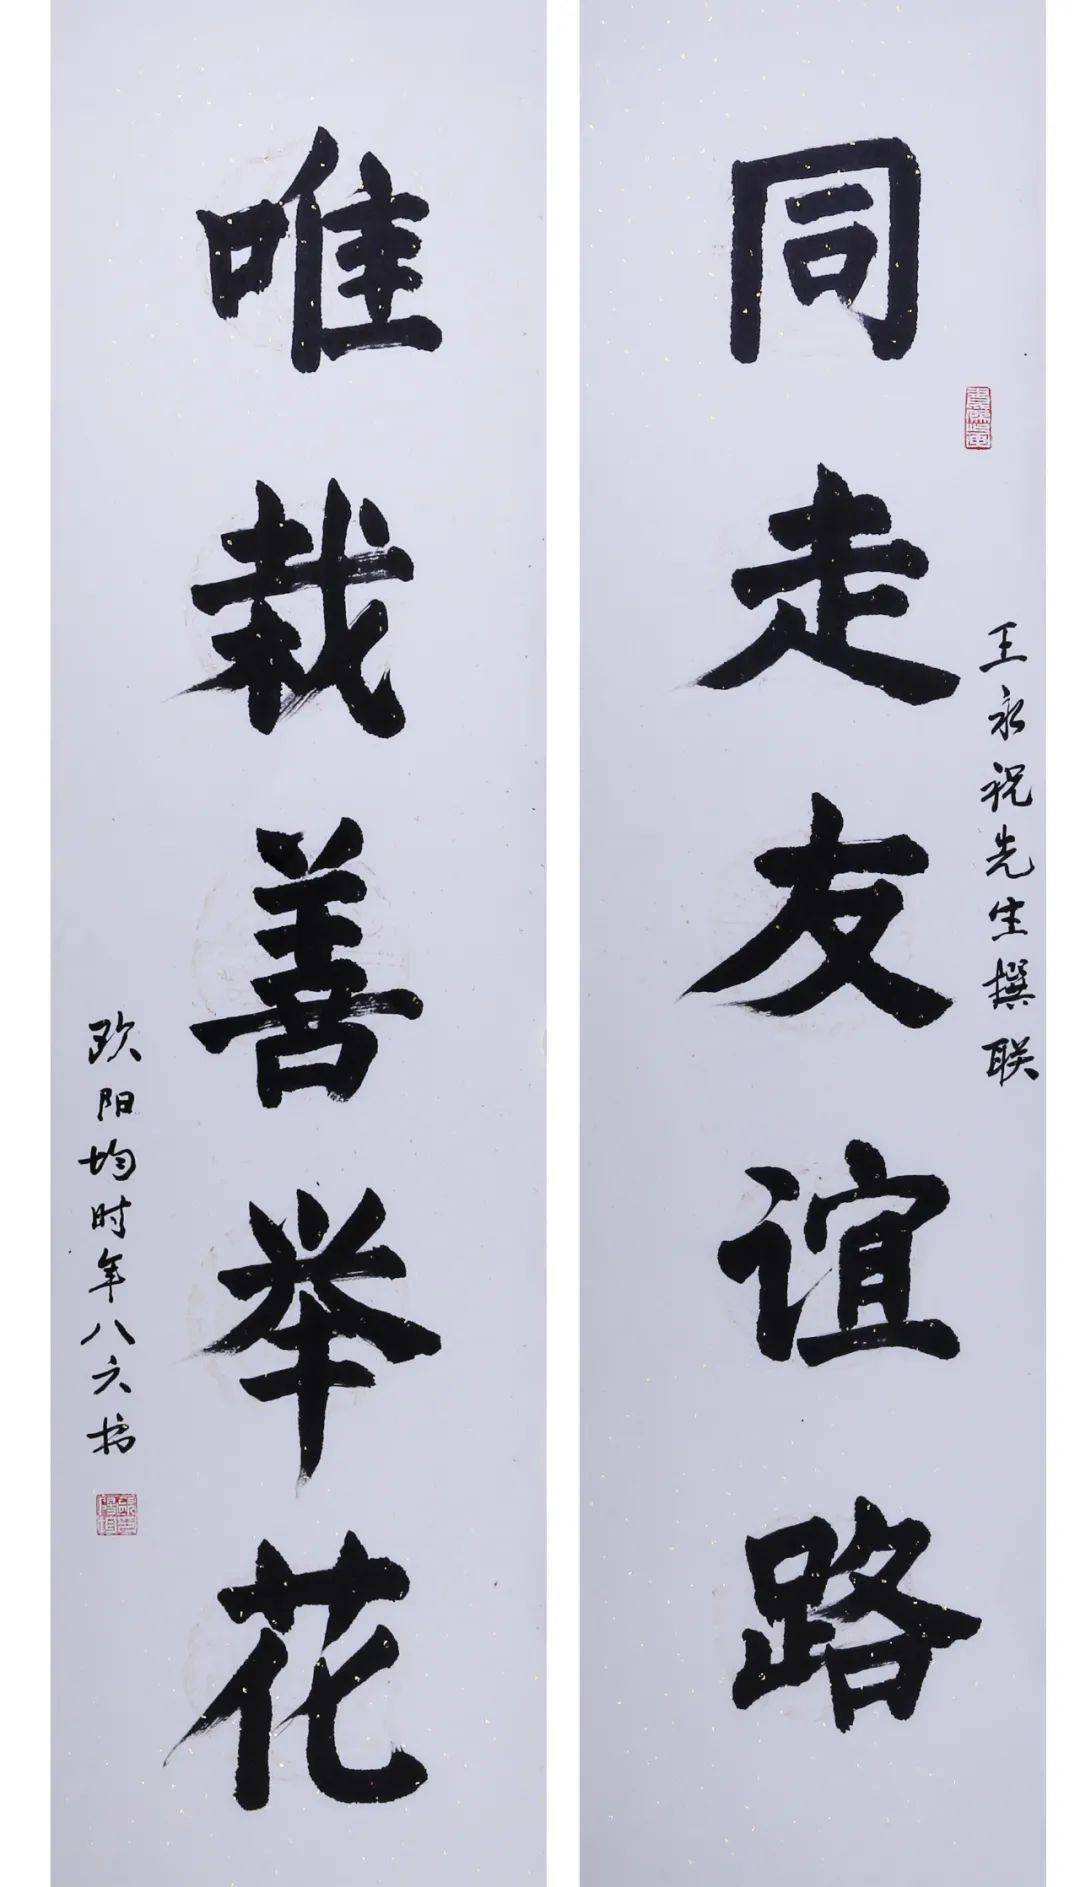 同走友谊路
王永祝先生撰联
唯栽善举花
欧阳均时年八六